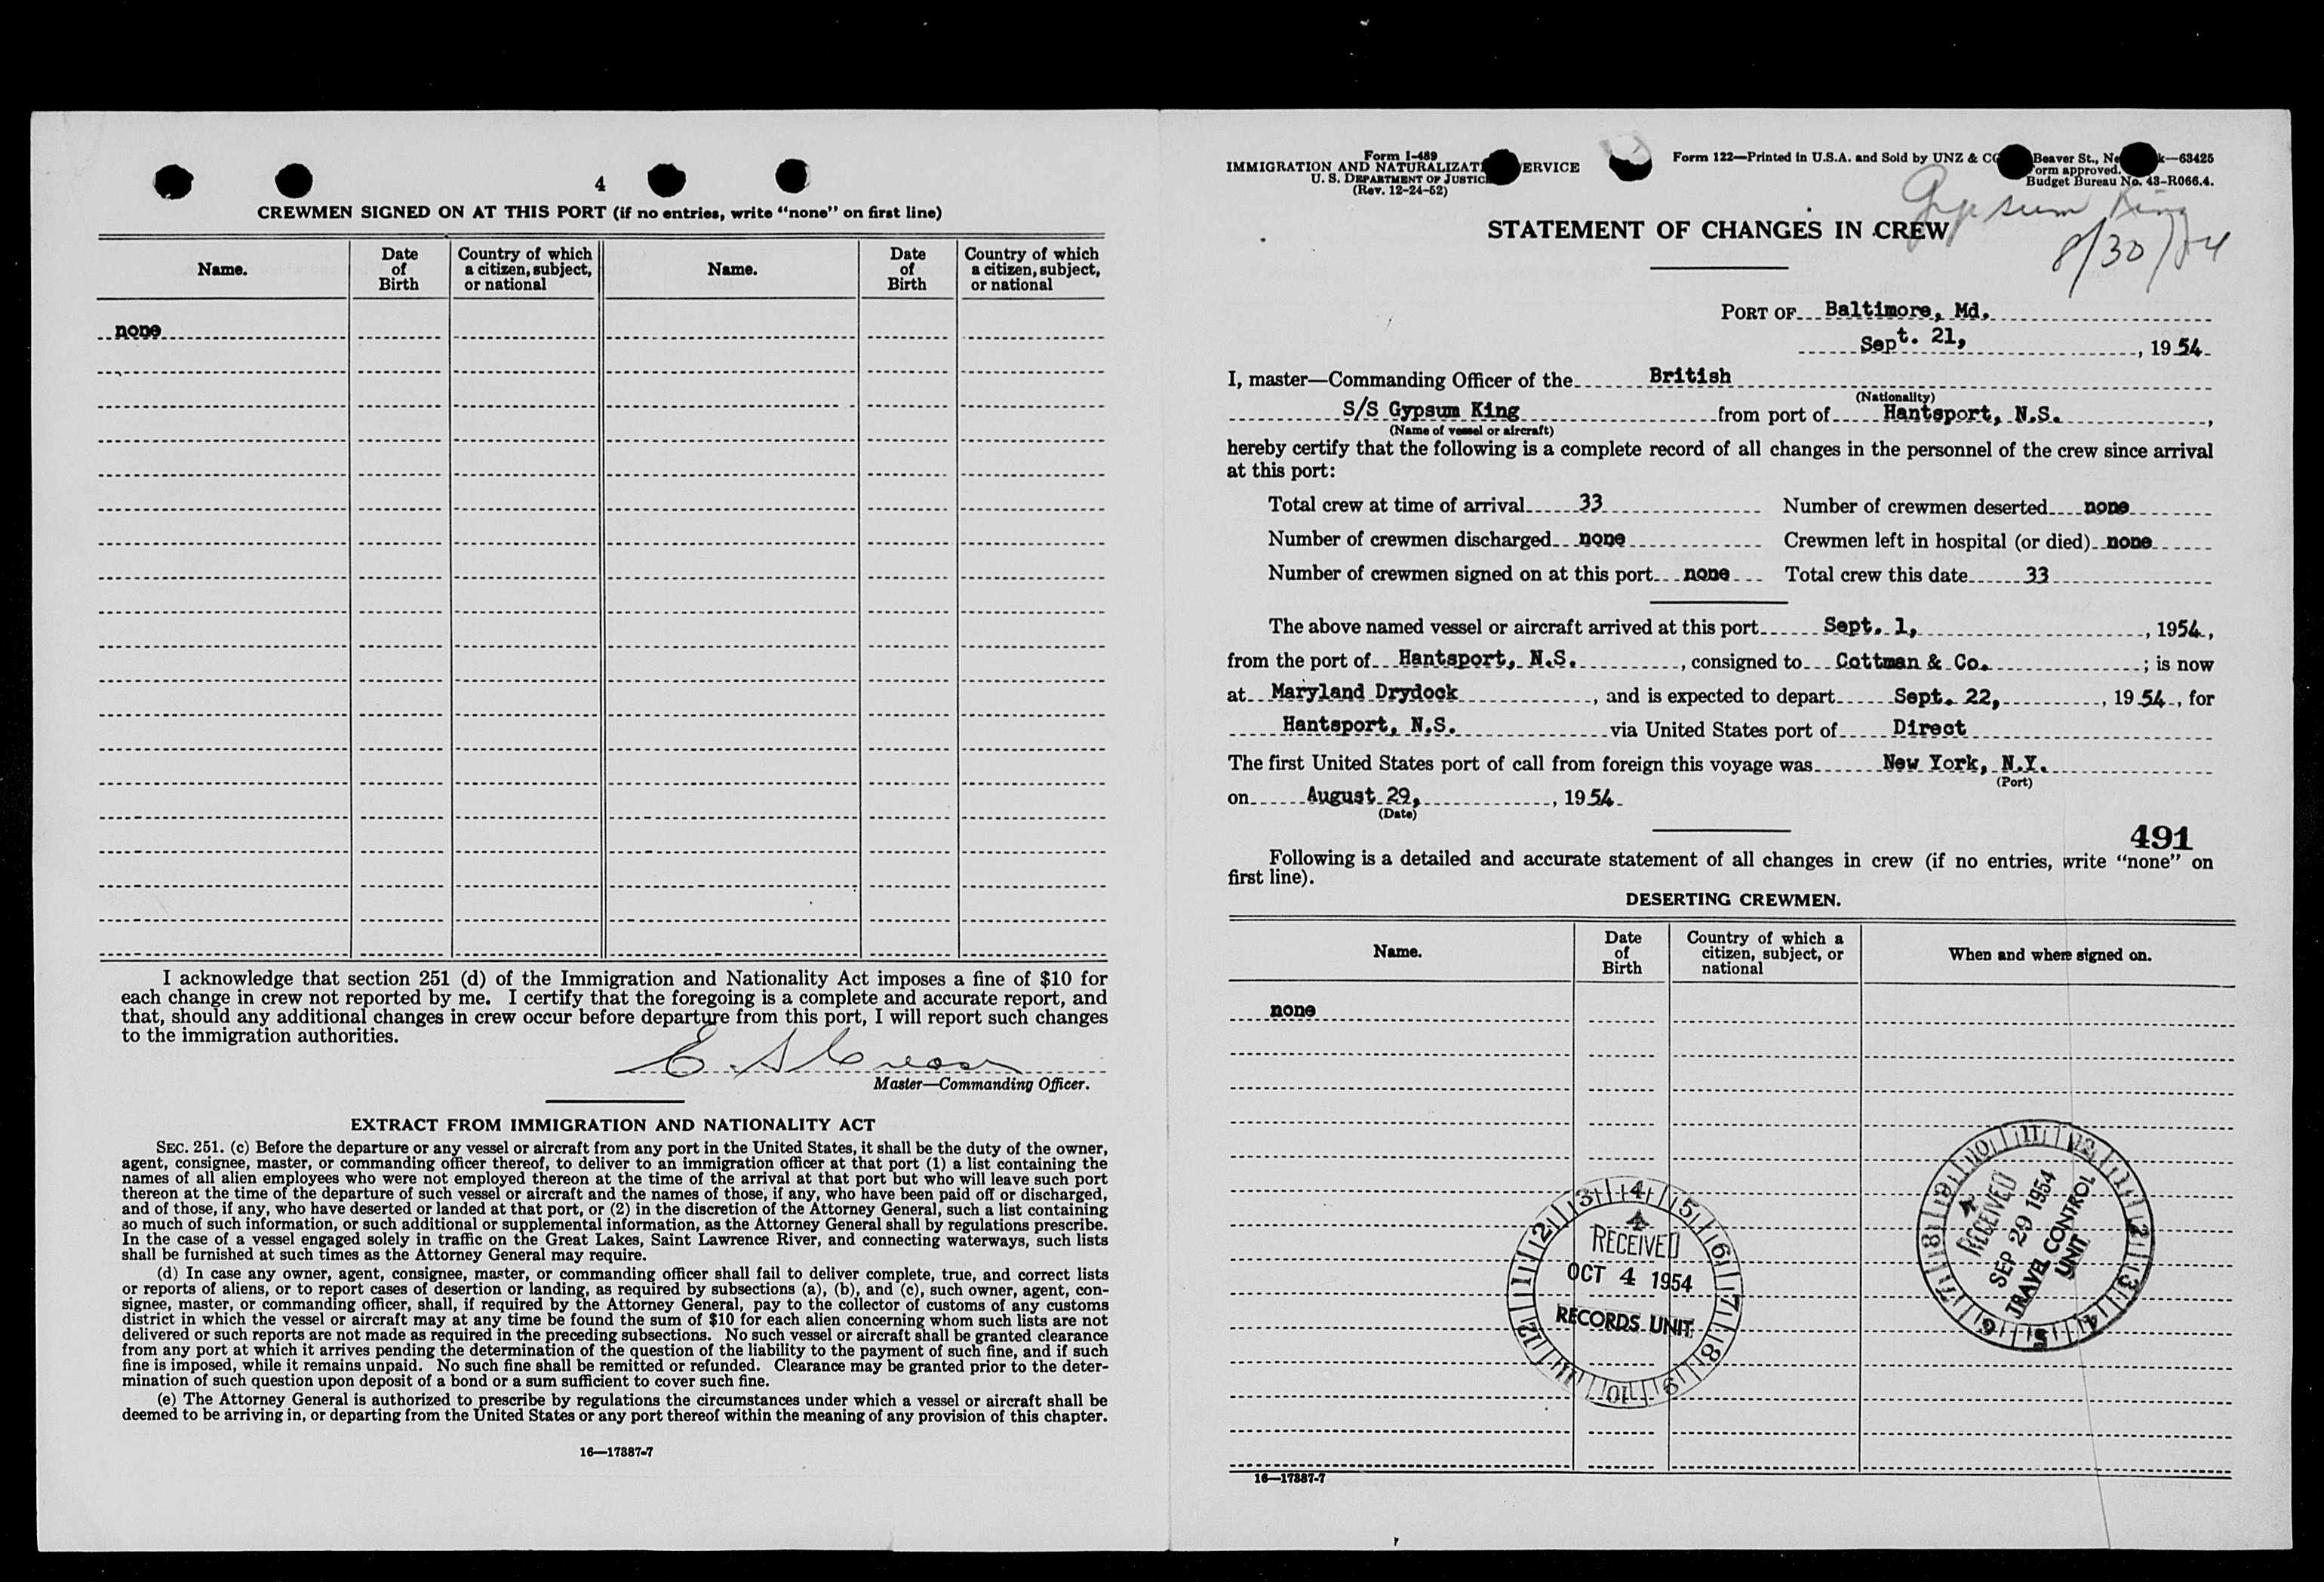 4
CREWMEN SIGNED ON AT THIS PORT (if no entries, write "none" on first line)
Name. Date of Birth Country of which a citizen, subject, or national Name. Date of Birth Country of which a citizen, subject, or national
none
I acknowledge that section 251 (d) of the Immigration and Nationality Act imposes a fine of $10 for
each change in crew not reported by me. I certify that the foregoing is a complete and accurate report, and
that, should any additional changes in crew occur before departure from this port, I will report such changes
to the immigration authorities.
Master—Commanding Officer.
EXTRACT FROM IMMIGRATION AND NATIONALITY ACT
SEC. 251. (c) Before the departure or any vessel or aircraft from any port in the United States, it shall be the duty of the owner,
agent, consignee, master, or commanding officer thereof, to deliver to an immigration officer at that port (1) a list containing the
names of all alien employees who were not employed thereon at the time of the arrival at that port but who will leave such port
thereon at the time of the departure of such vessel or aircraft and the names of those, if any, who have been paid off or discharged,
and of those, if any, who have deserted or landed at that port, or (2) in the discretion of the Attorney General, such a list containing
so much of such information, or such additional or supplemental information, as the Attorney General shall by regulations prescribe.
In the case of a vessel engaged solely in traffic on the Great Lakes, Saint Lawrence River, and connecting waterways, such lists
shall be furnished at such times as the Attorney General may require.
(d) In case any owner, agent, consignee, master, or commanding officer shall fail to deliver complete, true, and correct lists
or reports of aliens, or to report cases of desertion or landing, as required by subsections (a), (b), and (c), such owner, agent, con-
signee, master, or commanding officer, shall, if required by the Attorney General, pay to the collector of customs of any customs
district in which the vessel or aircraft may at any time be found the sum of $10 for each alien concerning whom such lists are not
delivered or such reports are not made as required in the preceding subsections. No such vessel or aircraft shall be granted clearance
from any port at which it arrives pending the determination of the question of the liability to the payment of such fine, and if such
fine is imposed, while it remains unpaid. No such fine shall be remitted or refunded. Clearance may be granted prior to the deter-
mination of such question upon deposit of a bond or a sum sufficient to cover such fine.
(e) The Attorney General is authorized to prescribe by regulations the circumstances under which a vessel or aircraft shall be
deemed to be arriving in, or departing from the United States or any port thereof within the meaning of any provision of this chapter.
16—17887-7
Form I-489
IMMIGRATION AND NATURALIZATI ERVICE
U. S. DEPARTMENT OF JUSTIC
(Rev. 12-24-52)
Form 122—Printed in U.S.A. and Sold by UNZ & CO Beaver St., Ne k—63425
orm approved.
Budget Bureau No. 43-R066.4.
Gypsum King
8/30/54
STATEMENT OF CHANGES IN CREW
PORT OF Baltimore, Md.
Sept. 21, , 1954
I, master—Commanding Officer of the British
(Nationality)
S/S Gypsum King from port of Hantsport, N.S. ,
(Name of vessel or aircraft)
hereby certify that the following is a complete record of all changes in the personnel of the crew since arrival
at this port:
Total crew at time of arrival 33 Number of crewmen deserted none
Number of crewmen discharged none Crewmen left in hospital (or died) none
Number of crewmen signed on at this port none Total crew this date 33
The above named vessel or aircraft arrived at this port Sept. 1, , 1954 ,
from the port of Hantsport, N.S. , consigned to Cottman & Co. ; is now
at Maryland Drydock , and is expected to depart Sept. 22, , 1954 , for
Hantsport, N.S. via United States port of Direct
The first United States port of call from foreign this voyage was New York, N.Y.
(Port)
on August 29, , 1954
(Date)
491
Following is a detailed and accurate statement of all changes in crew (if no entries, write "none" on
first line).
DESERTING CREWMEN.
Name. Date of Birth Country of which a citizen, subject, or national When and where signed on.
none
1 2 3 4 5 6 7 8 9 10 11 12
RECEIVED
OCT 4 1954
RECORDS UNIT
7 8 9 10 11 12 1 2 3 4 5 6
RECEIVED
SEP 29 1954
TRAVEL CONTROL
UNIT
16—17887-7